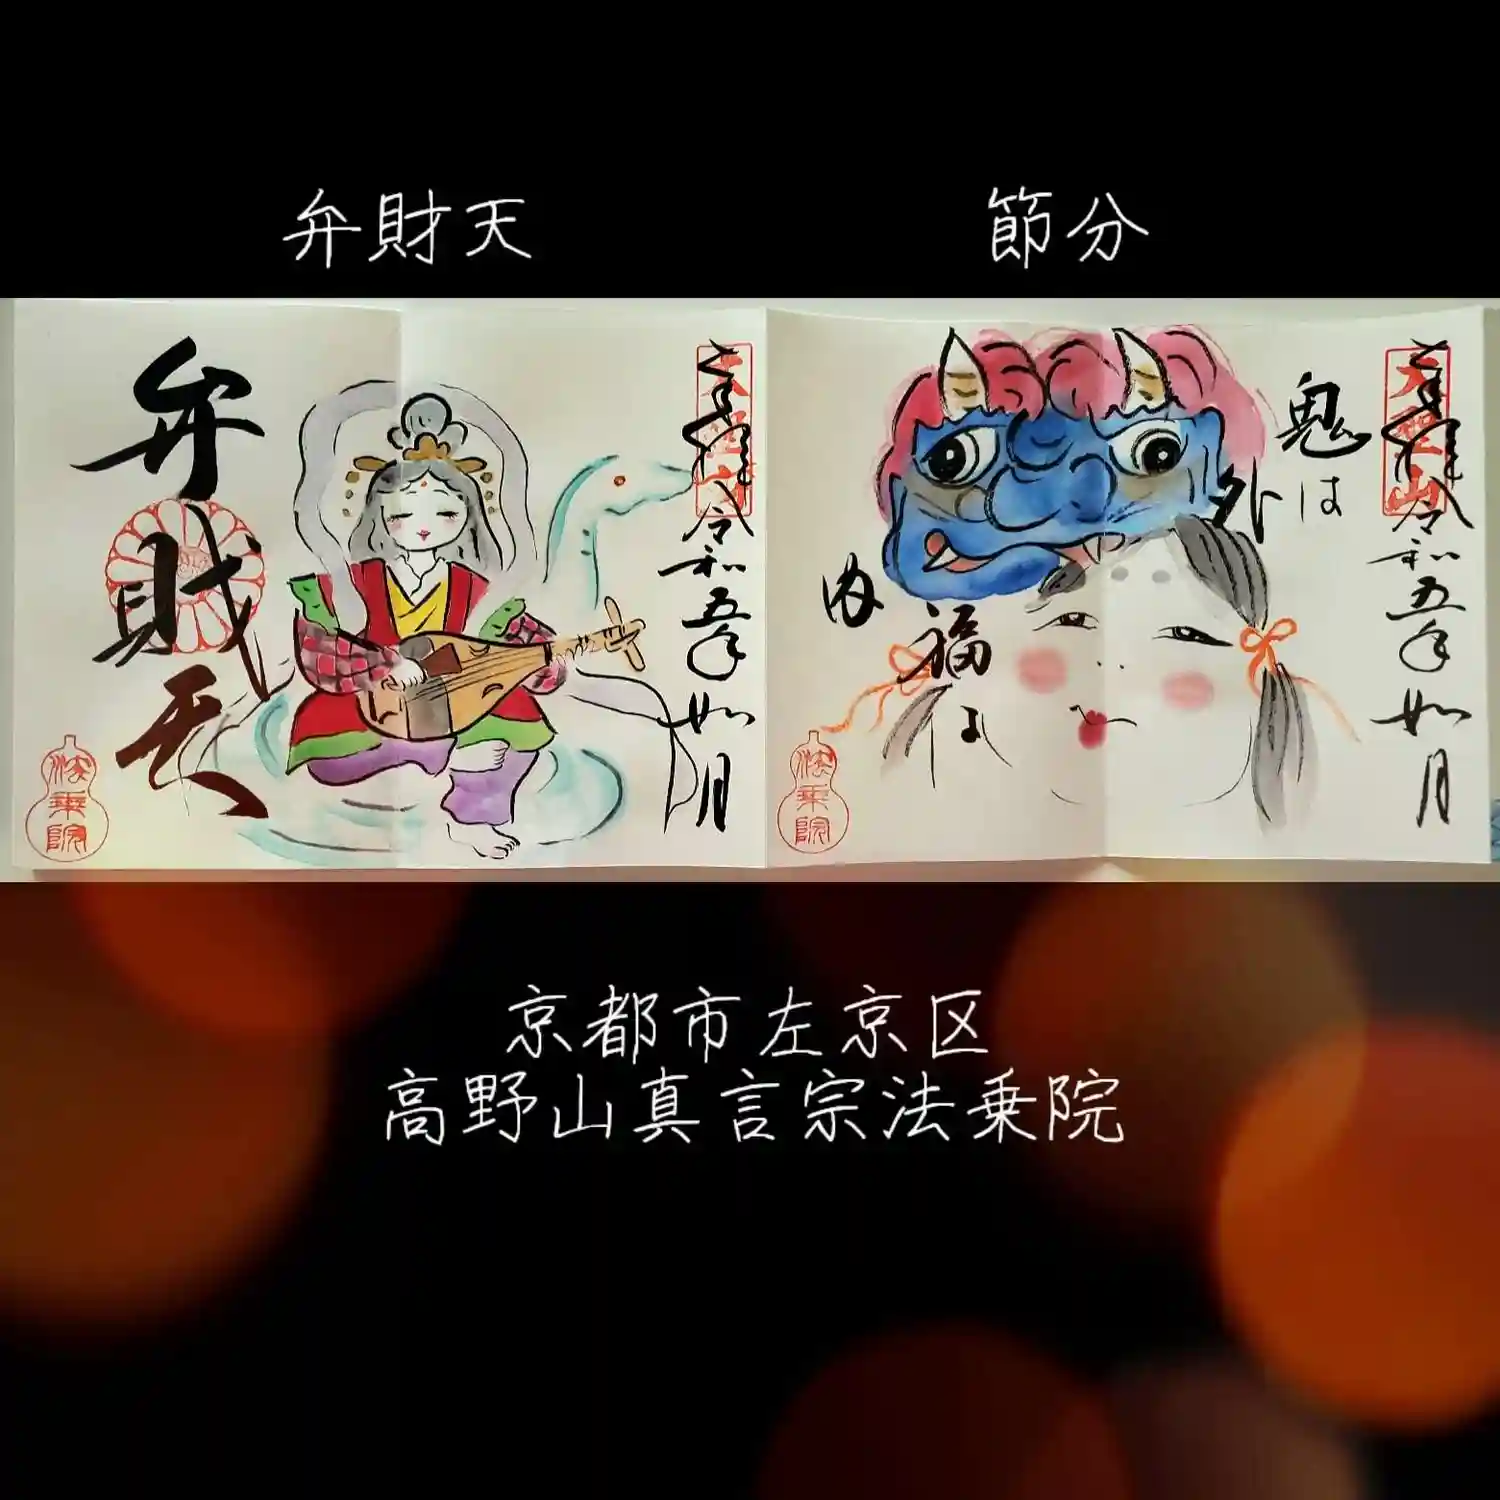 弁財天
節分
弁財天
奉拝 令和五年如月
法乗院
鬼は
外
福は
内
奉拝 令和五年如月
法乗院
京都市左京区
高野山真言宗法乗院